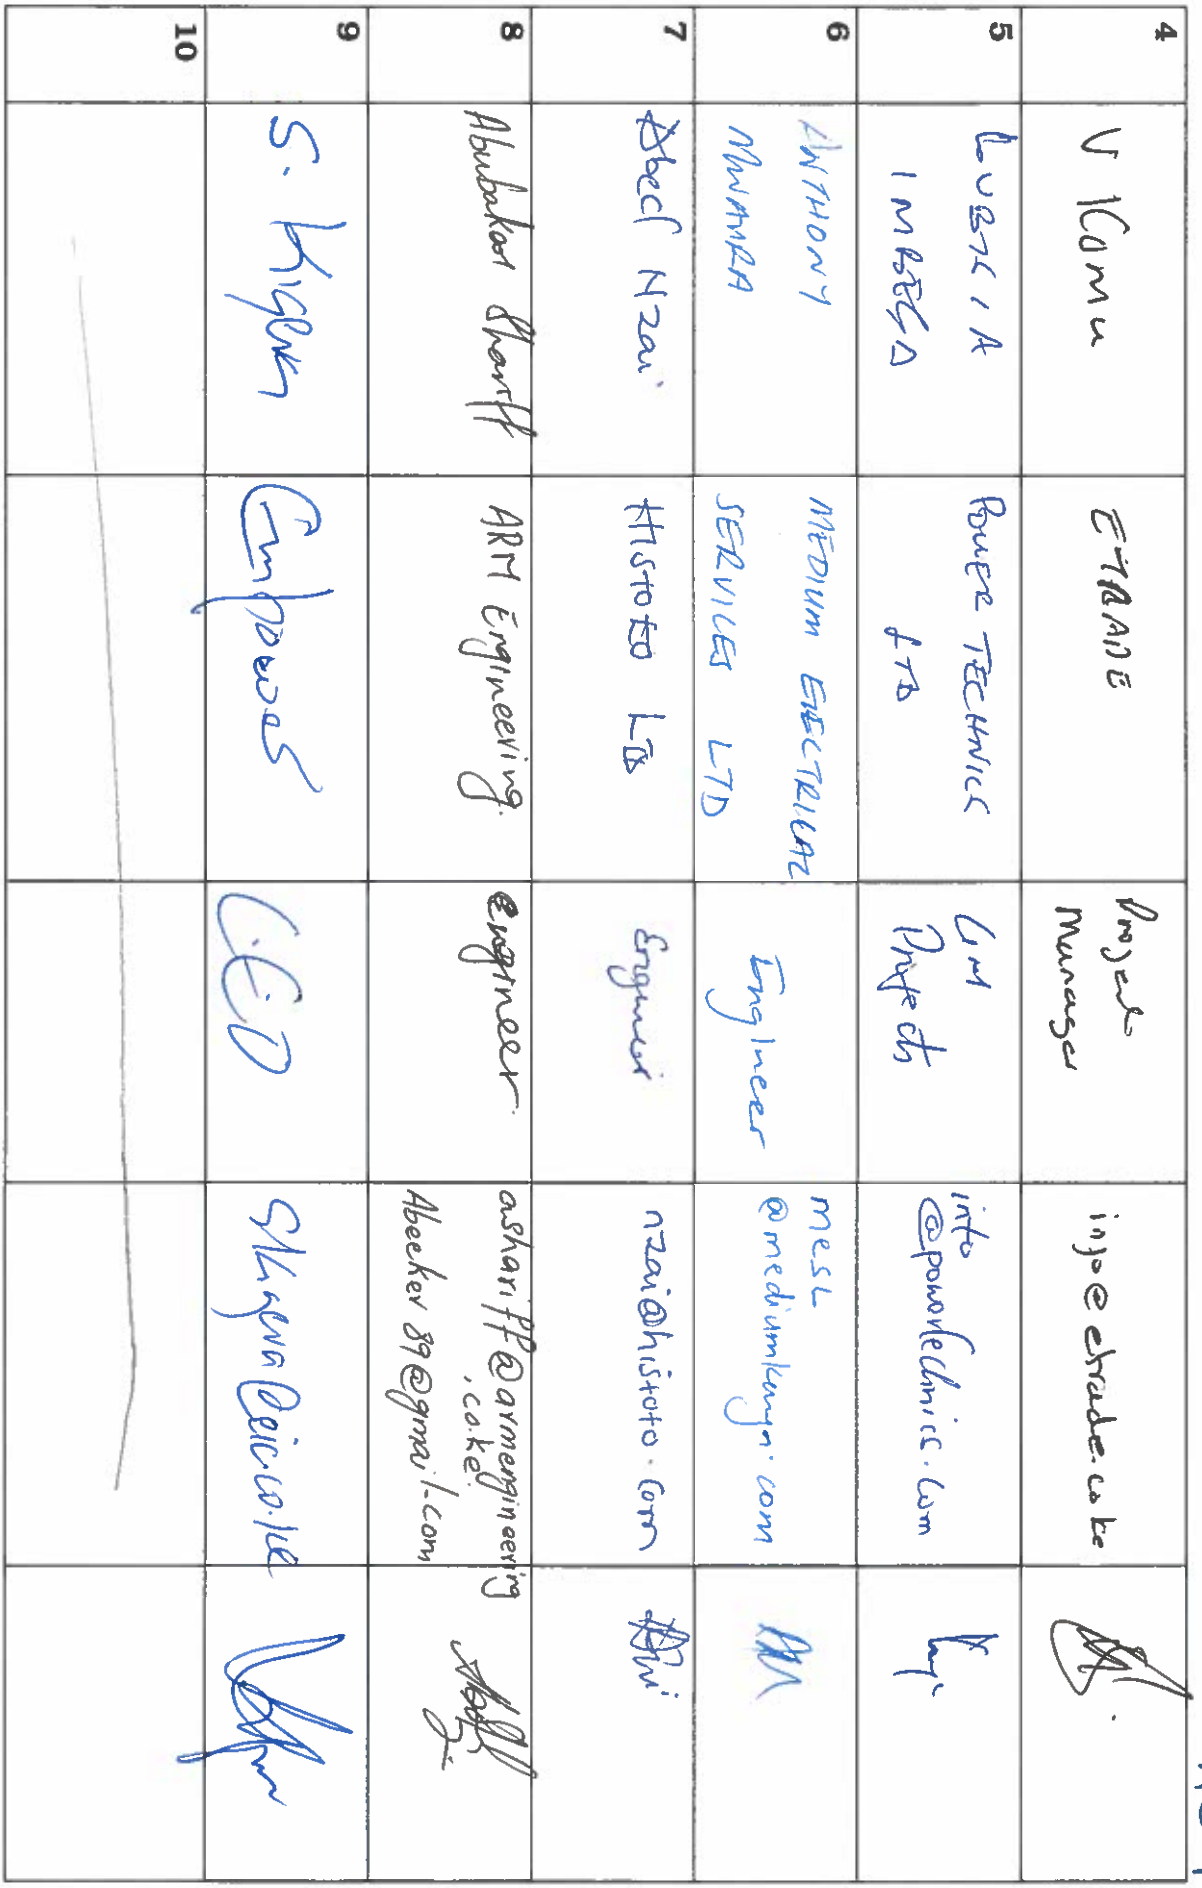 4
V Komu
ETRADE
Project
Manager
info@etrade.co.ke
5
IMBEGA
POWER TECHNICS
LTD
GM
Projects
info
@powertechnics.com
6
ANTHONY
MWAURA
MEDIUM ELECTRICAL
SERVICES LTD
Engineer
MESL
@mediumkenya.com
7
Abed Nzai
HISTOTO LTD
Engineer
nzai@histoto.com
8
Abubakar Shariff
ARM Engineering.
engineer.
ashariff@armengineering
.co.ke
Abeeker89@gmail.com
9
S.
Empower
C.E.O
10